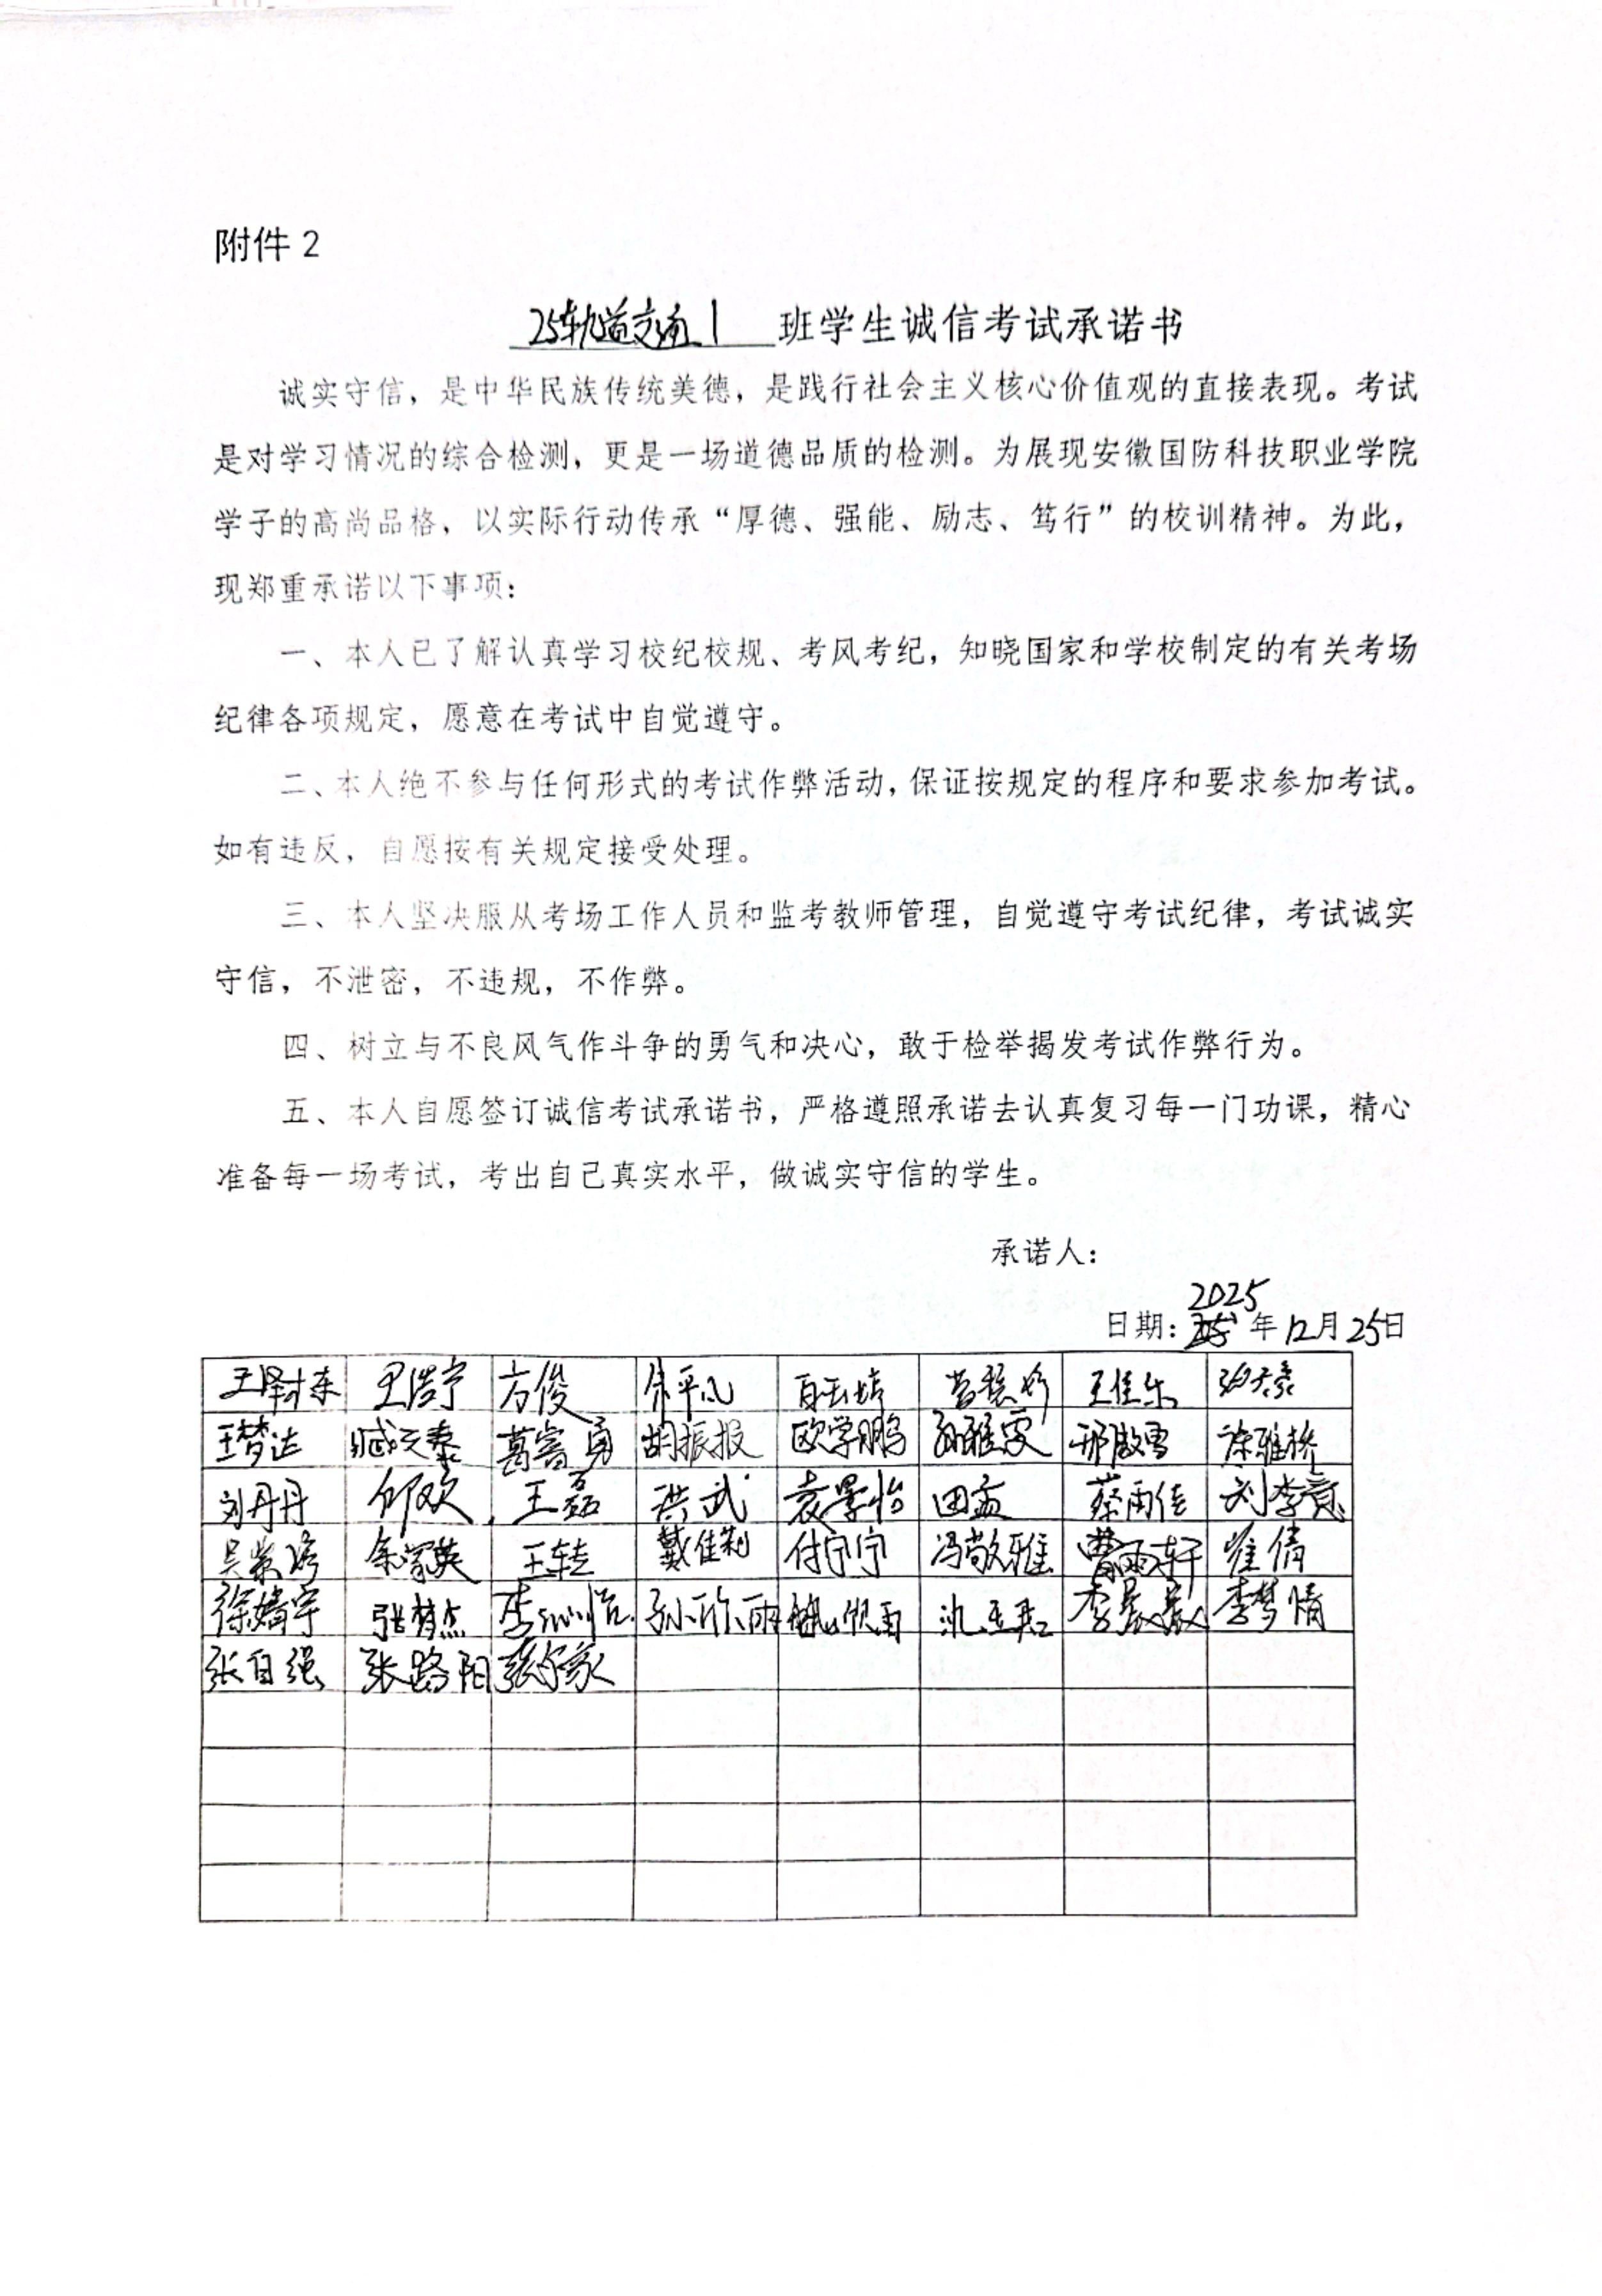 附件2
25轨道交通1 班学生诚信考试承诺书
诚实守信，是中华民族传统美德，是践行社会主义核心价值观的直接表现。考试
是对学习情况的综合检测，更是一场道德品质的检测。为展现安徽国防科技职业学院
学子的高尚品格，以实际行动传承“厚德、强能、励志、笃行”的校训精神。为此，
现郑重承诺以下事项：
一、本人已了解认真学习校纪校规、考风考纪，知晓国家和学校制定的有关考场
纪律各项规定，愿意在考试中自觉遵守。
二、本人绝不参与任何形式的考试作弊活动，保证按规定的程序和要求参加考试。
如有违反，自愿按有关规定接受处理。
三、本人坚决服从考场工作人员和监考教师管理，自觉遵守考试纪律，考试诚实
守信，不泄密，不违规，不作弊。
四、树立与不良风气作斗争的勇气和决心，敢于检举揭发考试作弊行为。
五、本人自愿签订诚信考试承诺书，严格遵照承诺去认真复习每一门功课，精心
准备每一场考试，考出自己真实水平，做诚实守信的学生。
承诺人：
2025
日期： 年12月25日
方俊 王佳乐
王梦达 臧天泰 胡振报 欧学鹏 孙雅雯 邢傲雪 徐雅桥
刘丹丹 邱欢 王磊 洪武 袁景怡 田孟 蔡雨佳 刘李意
王转 戴佳莉 付宁宁 冯敬雅 曹雨轩 崔倩
徐嫱宇 张梦杰 孙欣雨 李晨薇 李梦情
张自强 张路阳 张家